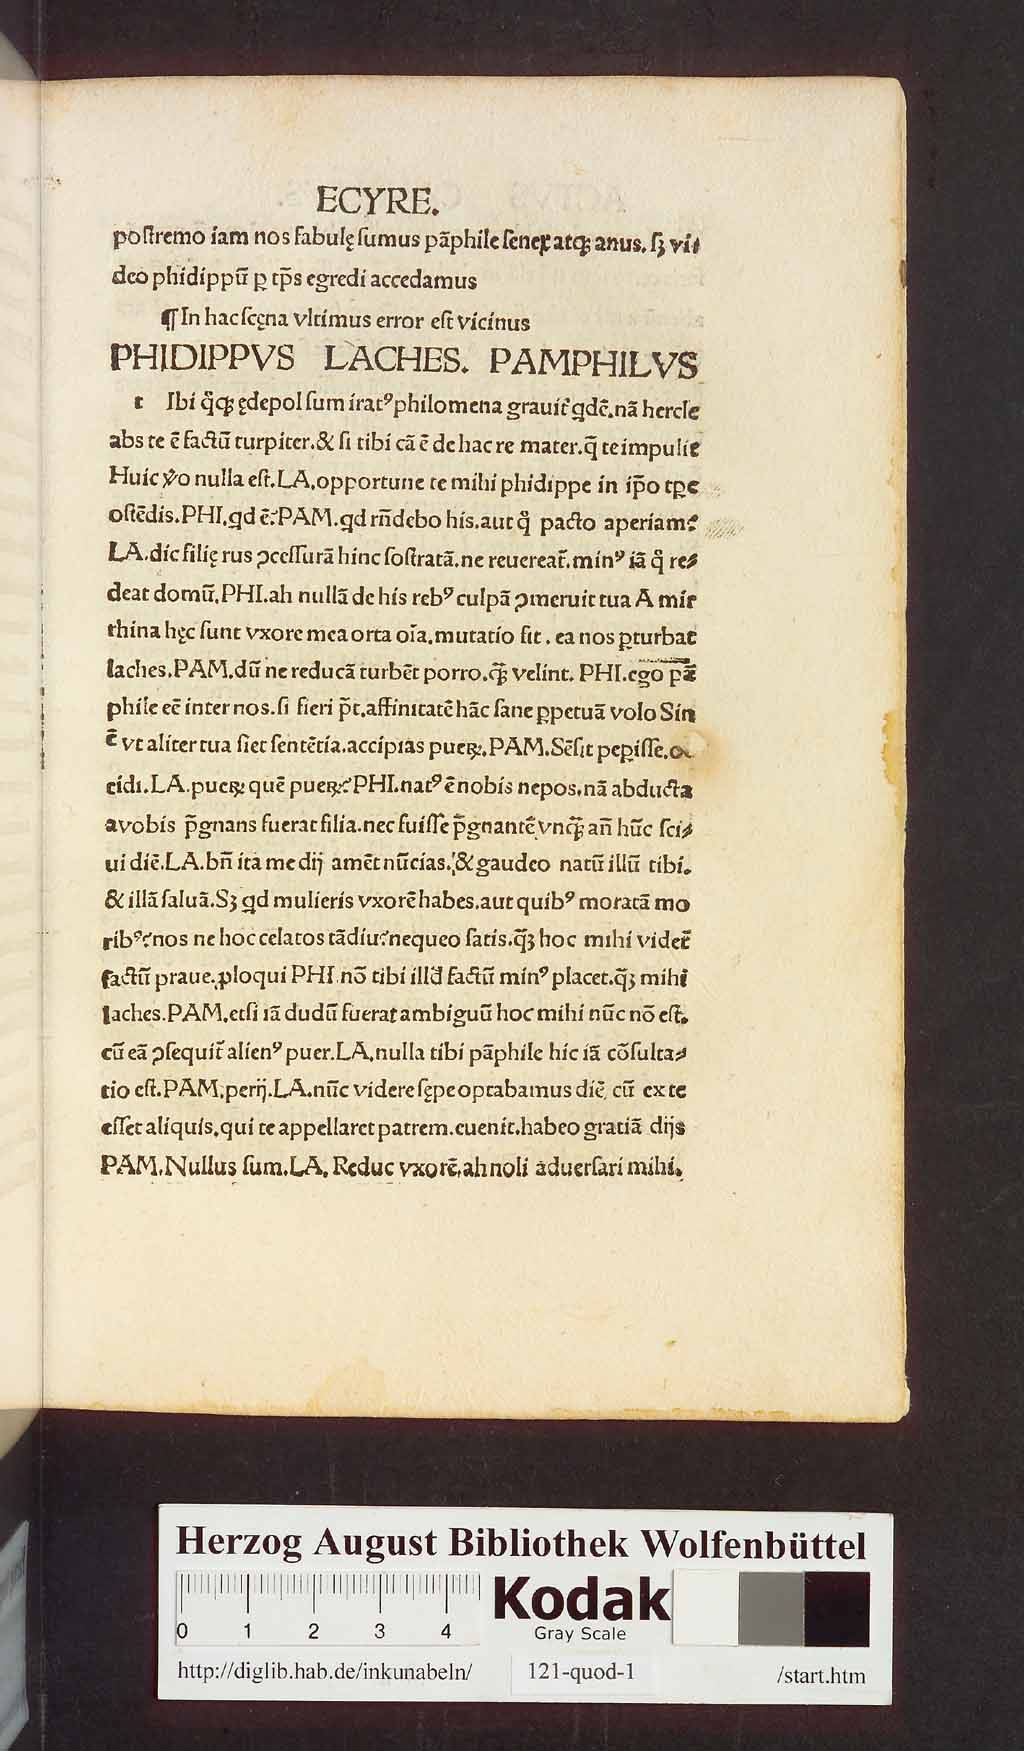 ECYRE.
poſtremo iam nos fabulę ſumus pãphile ſenex atqꝫ anus. ſꝫ vi⸗
deo phidippũ ꝑ tp̃s egredi accedamus
¶ In hac ſcęna vltimus error eſt vicinus
PHIDIPPVS LACHES. PAMPHILVS
t Ibi q̃qꝫ ędepol ſum iratꝰ philomena grauit᷑ qdẽ. nã hercle
abs te ẽ factũ turpiter. & ſi tibi cã ẽ de hac re mater. q̃ te impulit
Huic ꝟo nulla eſt. LA. opportune te mihi phidippe in ip̃o tꝑe
oſtẽdis. PHI. qd ẽ? PAM. qd rñdebo his. aut q̃ pacto aperiam?
LA. dic filię rus ꝯceſſurã hinc ſoſtratã. ne reuereat᷑. minꝰ iã q̃ re⸗
deat domũ. PHI. ah nullã de his rebꝰ culpã ꝯmeruit tua A mir
rhina hęc ſunt vxore mea orta oĩa. mutatio fit. ea nos ꝑturbat
laches. PAM. dũ ne reducã turbẽt porro. qꝫ̃ velint. PHI. ego pã
phile eẽ inter nos. ſi fieri p̃t. affinitatẽ hãc ſane ꝑpetuã volo Sin
ẽ vt aliter tua ſiet ſentẽtia. accipias pueꝝ. PAM. Sẽſit peꝑiſſe. oc
cidi. LA. pueꝝ quẽ pueꝝ? PHI. natꝰ ẽ nobis nepos. nã abducta
a vobis p̃gnans fuerat filia. nec fuiſſe p̃gnantẽ vnqꝫ̃ añ hũc ſci⸗
ui diẽ. LA. bñ ita me dij amẽt nũcias. & gaudeo natũ illũ tibi.
& illã ſaluã. Sꝫ qd mulieris vxorẽ habes. aut quibꝰ moratã mo
ribꝰ? nos ne hoc celatos tãdiu? nequeo ſatis. qꝫ̃ hoc mihi videt᷑
factũ praue. ꝓloqui PHI. nõ tibi illd̃ factũ minꝰ placet. qꝫ̃ mihi
laches. PAM. etſi iã dudũ fuerat ambiguũ hoc mihi nũc nõ eſt.
cũ eã ꝯſequit᷑ alienꝰ puer. LA. nulla tibi pãphile hic iã cõſulta⸗
tio eſt. PAM. perij. LA. nũc videre ſępe optabamus diẽ, cũ ex te
eſſet aliquis. qui te appellaret patrem. euenit. habeo gratiã dijs
PAM. Nullus ſum. LA. Reduc vxorẽ. ah noli aduerſari mihi.
Herzog August Bibliothek Wolfenbüttel
0 1 2 3 4
Kodak
Gray Scale
http://diglib.hab.de/inkunabeln/ 121-quod-1 /start.htm